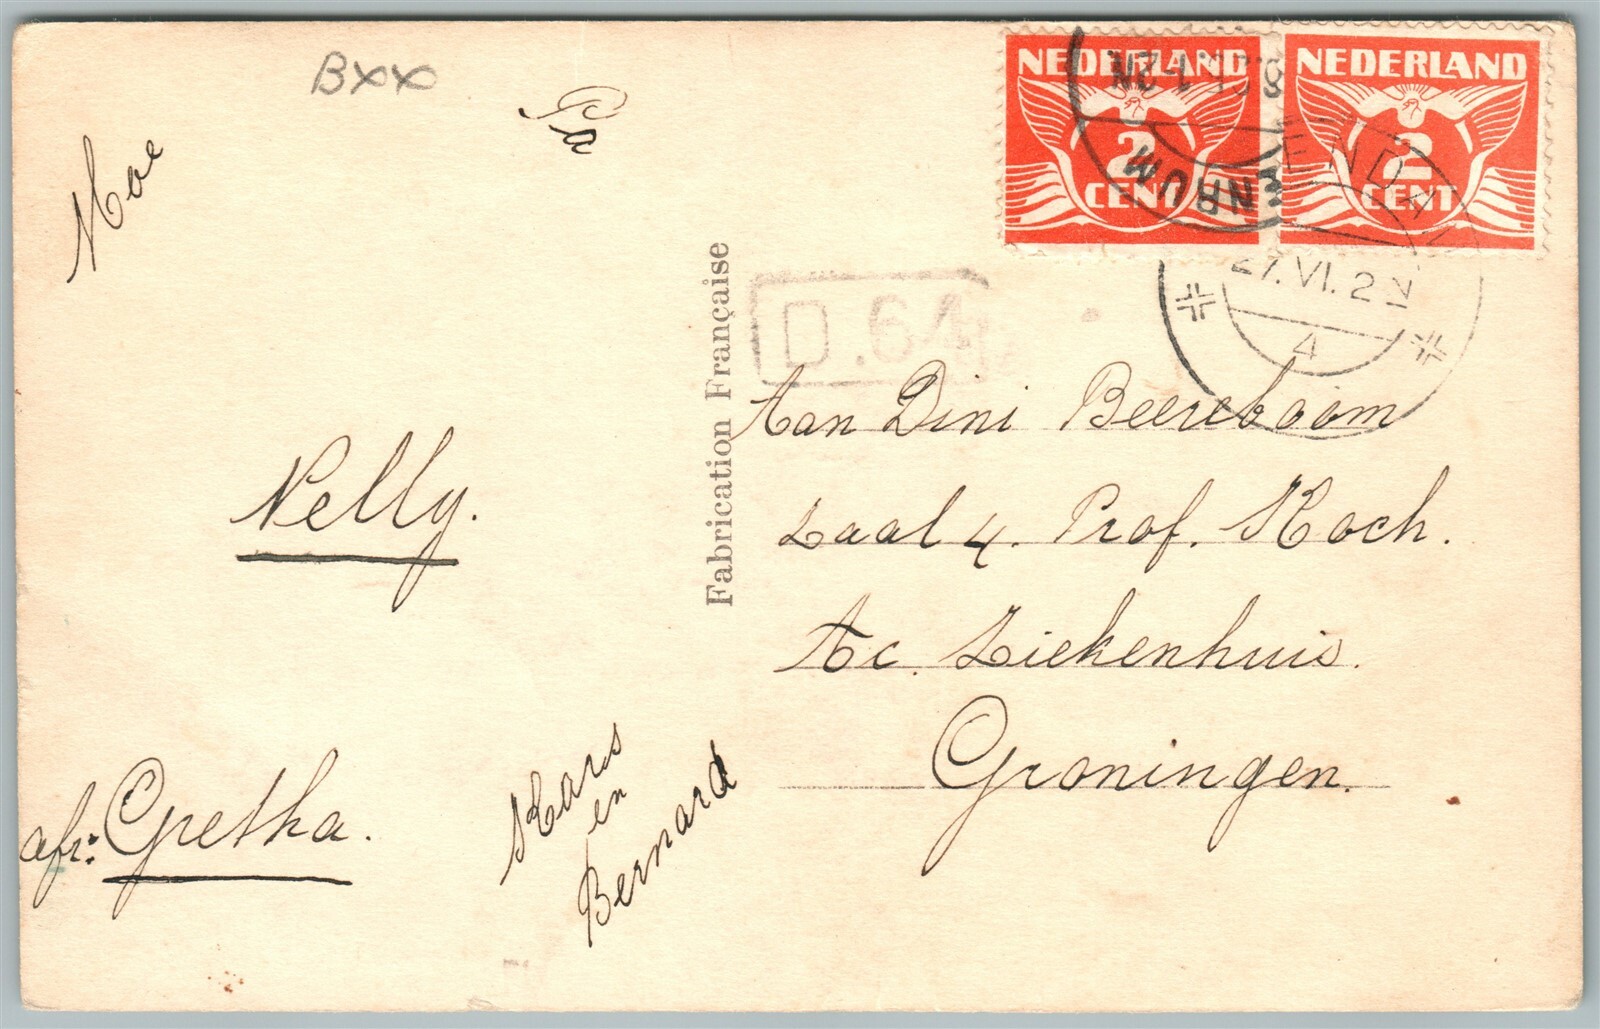 BXX
Moe
Pa
Nelly.
afz: Gretha.
Kars
en
Bernard
Fabrication Française
NEDERLAND
2
CENT
NEDERLAND
2
CENT
27.VI.2
4
D.64
Aan Dini Beereboom
Zaal 4. Prof. Koch.
Ac. Ziekenhuis.
Groningen.